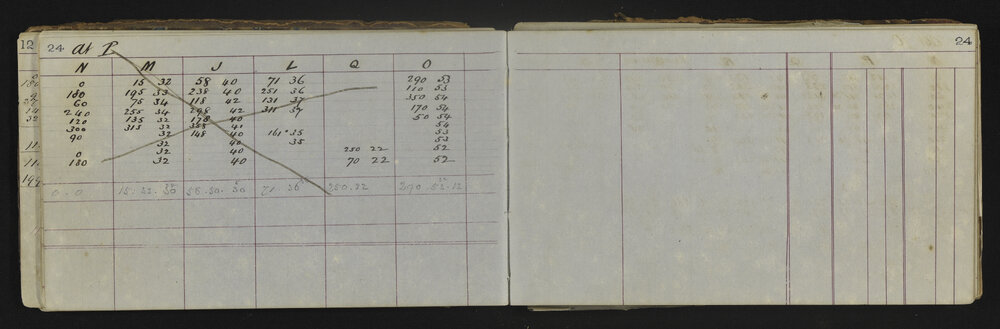 12 24 at P 24
N M J L Q O
0 15 32 58 40 71 36 290 53
180 195 33 238 40 251 36 110 53
60 75 34 118 42 131 37 350 54
240 255 34 298 42 311 37 170 54
120 135 32 178 40 50 54
300 315 32 358 41 54
90 32 148 40 161 35 53
32 40 35 53
0 32 40 250 22 52
180 32 40 70 22 52
0 . 0 15 . 32 . 30 58 . 30 . 30 71 36 250 . 22 290 . 52 . 12